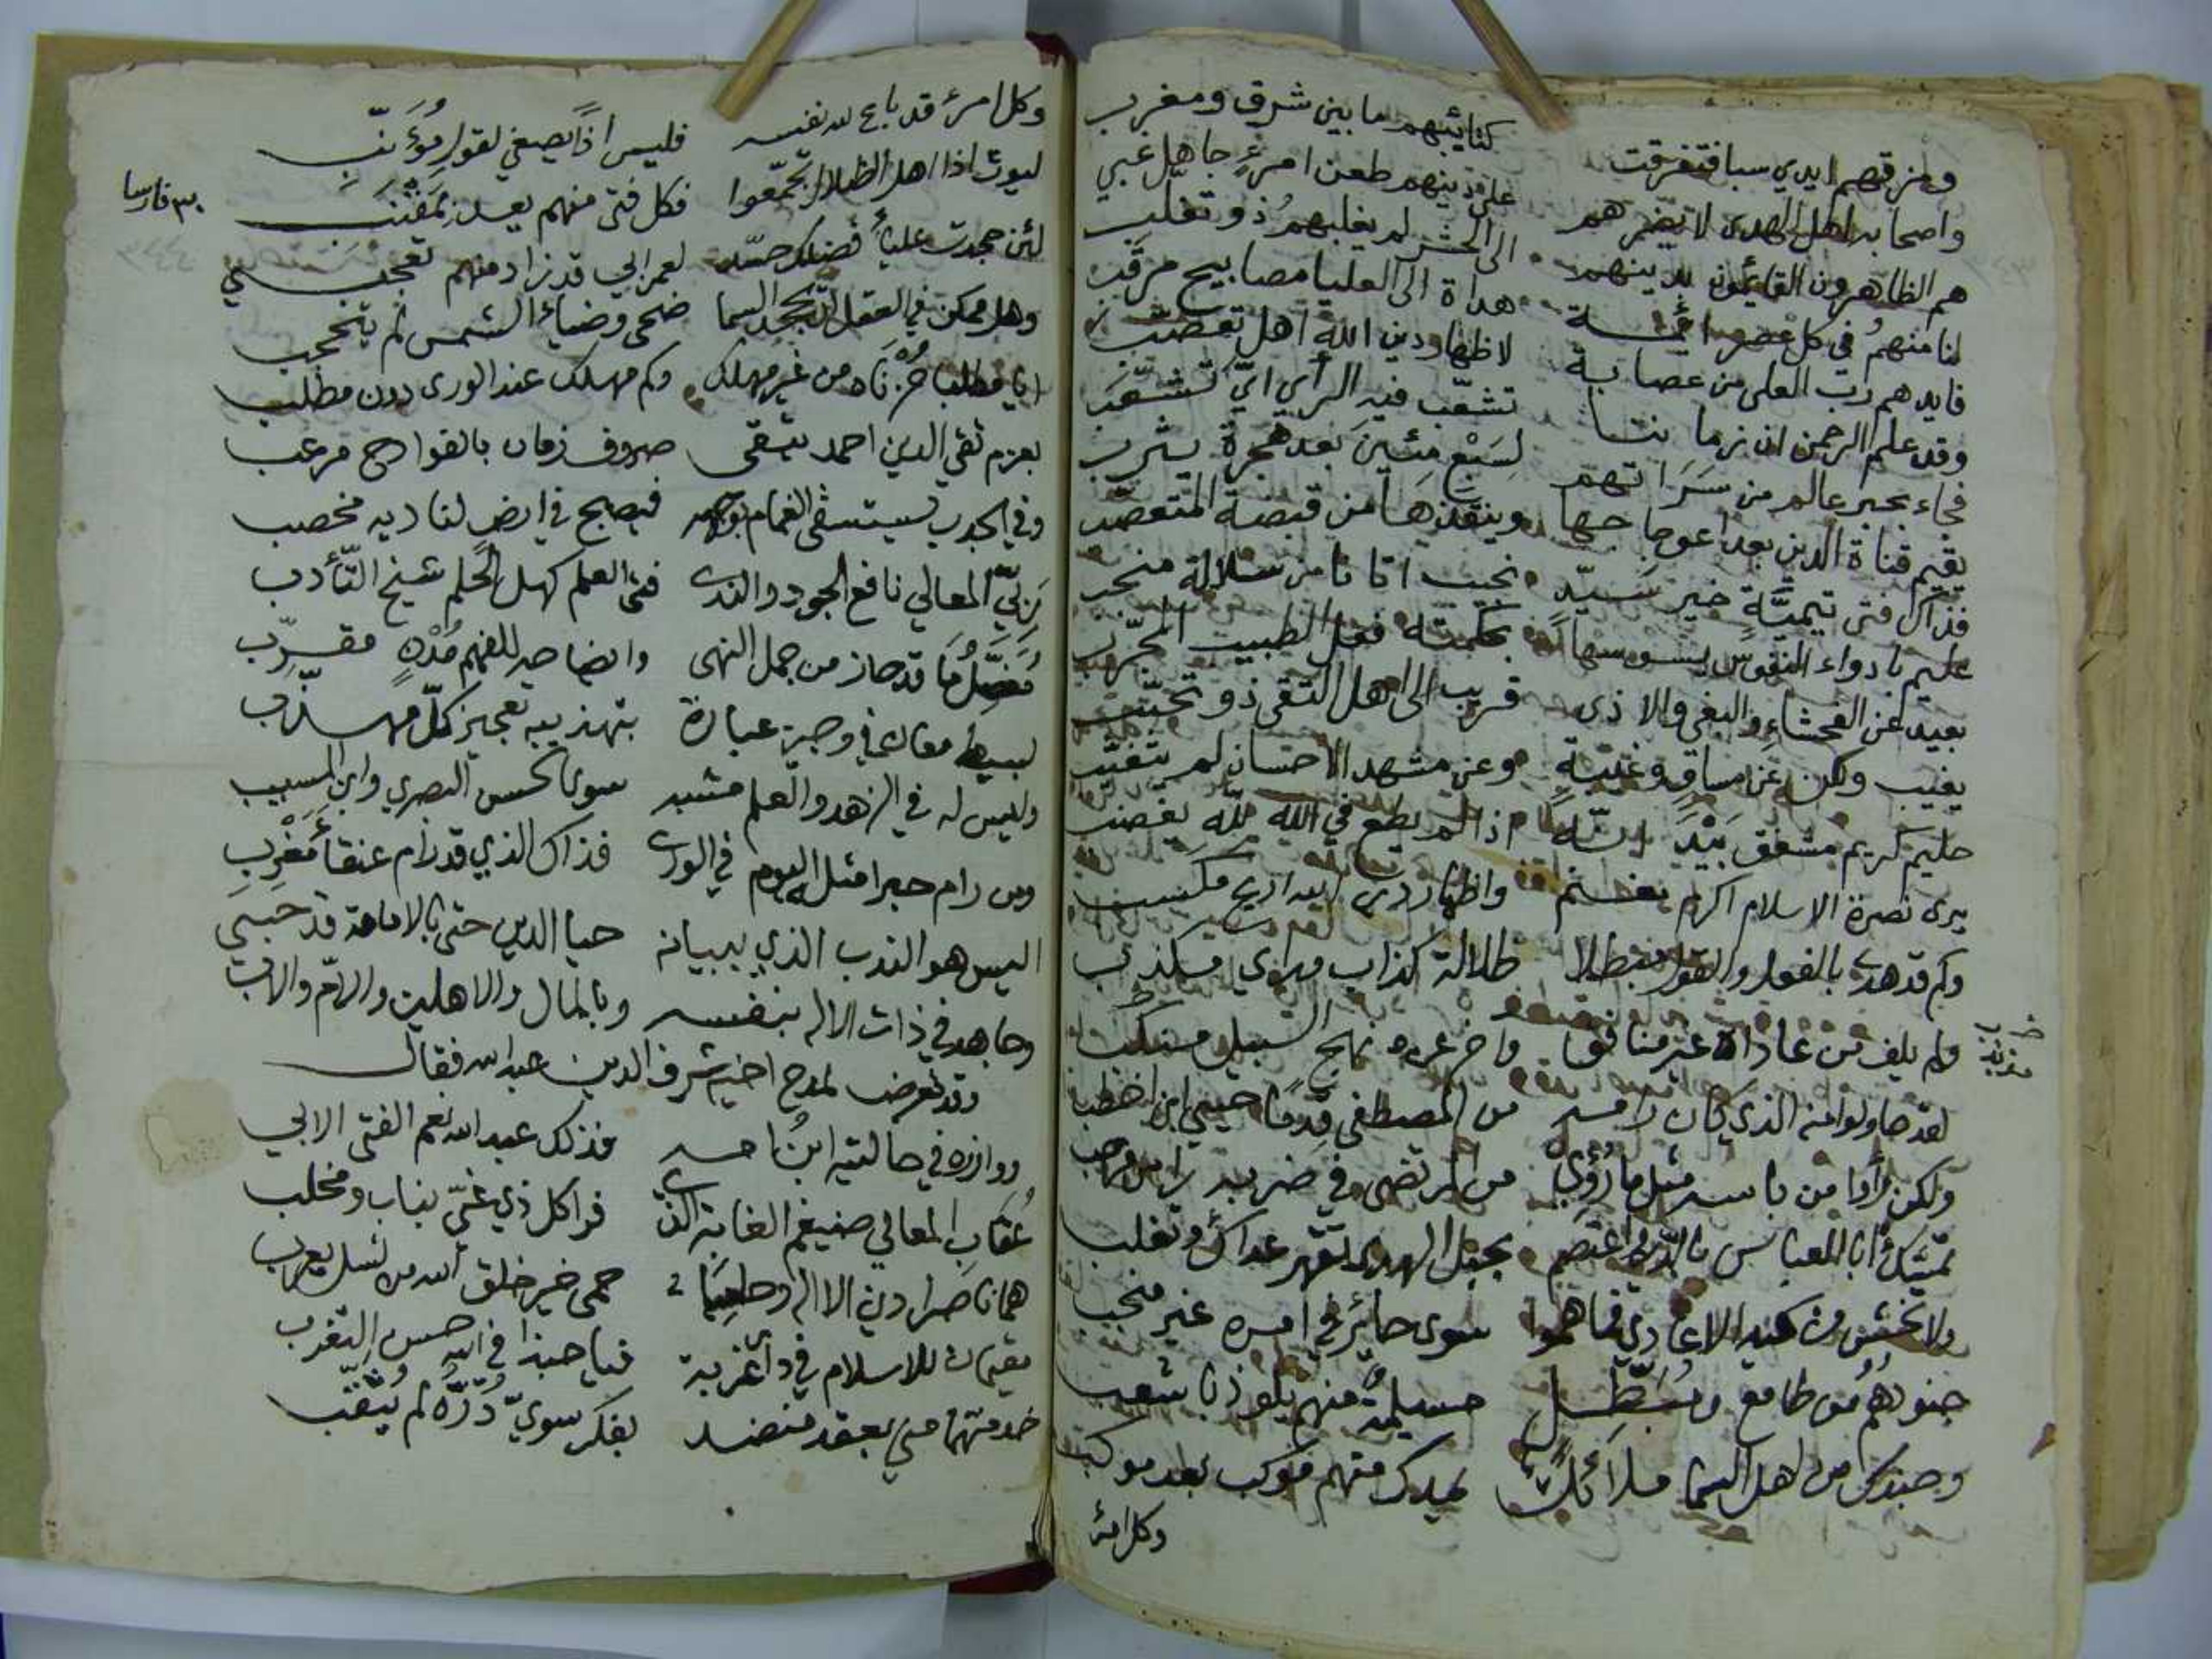 ومزقهم ايدي سبا فتفرقت كتائبهم ما بين شرق ومغرب
واصحابه اهل الهدى لا يضرهم على دينهم طعن امرءٍ جاهل غبي
هم الظاهرون القائمون بدينهم الى الحشر لم يغلبهم ذو تغلب
لنا منهم في كل عصر ائمة هداة الى العليا مصابيح مرقب
فايدهم رب العلى من عصابة لاظهار دين الله اهل تعصب
وقد علم الرحمن ان زماننا تشعب فيه الرأي اي تشعب
فجاء بحبر عالم من سراتهم لسبع مئين بعد هجرة يثرب
يقيم قناة الدين بعد اعوجاجها وينقذها من قبضة المتعصب
فذاك فتى تيمية خير سيد نجيب اتانا من سلالة منجب
عليم بادواء النفوس يسوسها بحكمته فعل الطبيب المجرب
بعيد عن الفحشاء والبغي والاذى قريب الى اهل التقى ذو تحبب
يغيب ولكن عن مساوٍ وغيبة وعن مشهد الاحسان لم يتغيب
حليم كريم مشفق بيد انه اذا لم يطع في الله لله يغضب
يرى نصرة الاسلام اكرم مغنم واظهار دين الله اربح مكسب
وكم قد هدى بالفعل والقول مبطلا ظلالة كذاب مكذب
ولم يلف من عاداه غير منافق واخر عن نهج السبيل منكب
لقد حاولوا منه الذي كان رامه من المصطفى قدما حيي ابن اخطب
ولكن رأوا من باسه مثل ما رؤي من المرتضى في ضربه راس مرحب
تمسك ابا العباس بالدين واعتصم بحبل الهدى تقهر عداك وتغلب
ولا تخش من كيد الاعادي فما هموا سوى حائر في امره غير منجب
جنودهم من طامع مسيلمة منهم يلوذ باشعب
وجندك من اهل السما ملائك يمدك منهم موكب بعد موكب
وكل امرئ
وكل امرئ قد باع لله نفسه فليس اذًا يصغي لقول مؤنب
ليوث اذا اهل الظلال تجمعوا فكل فتى منهم يعد بمقنب
لئن جحدت علياء فضلك حسّد لعمر ابي قد زاد منهم تعجبي
وهل ممكن في العقل ان يجحد السما ضحى وضياء الشمس لم يتحجب
ايا مطلبا حزناه من غير مهلك وكم مهلك عند الورى دون مطلب
بعزم تقي الدين احمد يتقى صروف زمان بالقوادح مرعب
وفي الجدب يستسقى الغمام بوجهه فيصبح في ارض لناديه مخصب
ربي المعالي نافع الجود والندى فتى العلم كهل الحلم شيخ التأدب
قد حاز من جمل النهى وايضاحه للفهم مقرب
بسيط معان في وجيز عبارة بتهذيبه تعجيز كل مهذب
وليس له في الزهد والعلم مشبه سوى الحسن البصري وابن المسيب
ومن رام حبرا مثله اليوم في الورى فذاك الذي قد رام عنقاء مغرب
اليس هو الندب الذي ببيانه حيا الدين حتى بالامامة قد حبي
وجاهد في ذات الاله بنفسه وبالمال والاهلين والام والاب
وقد تعرض لمدح اخيه شرف الدين عبد الله فقال
ووازره في حالتيه ابن امه فذلك عبد الله نعم الفتى الابي
عقاب المعالي ضيغم الغابة الذي فرا كل ذي غي بناب ومخلب
هما ناصرا دين الاله حمى خير خلق الله من نسل يعرب
مقيمان للاسلام في دار غربة فيا حبذا في الله حسن التغرب
خدمتهما مني بعقد منضد بفكر سوي دره لم يثقب